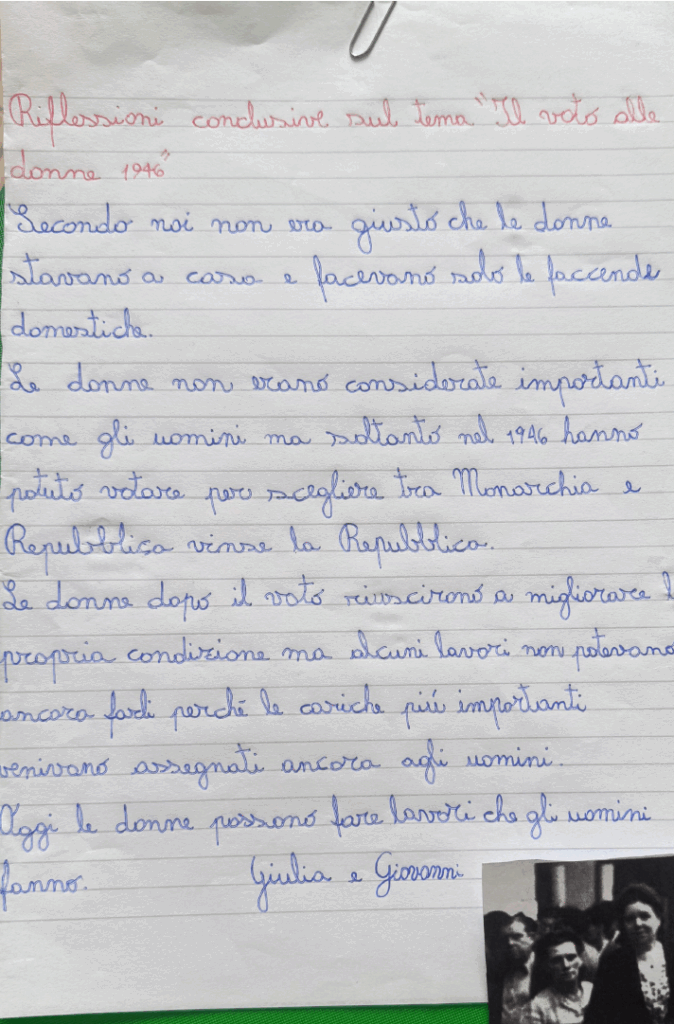 Riflessioni conclusive sul tema "Il voto alle
donne 1946"
Secondo noi non era giusto che le donne
stavano a casa e facevano solo le faccende
domestiche.
Le donne non erano considerate importanti
come gli uomini ma soltanto nel 1946 hanno
potuto votare per scegliere tra Monarchia e
Repubblica vinse la Repubblica.
Le donne dopo il voto riuscirono a migliorare l
propria condizione ma alcuni lavori non potevano
ancora farli perché le cariche più importanti
venivano assegnati ancora agli uomini.
Oggi le donne possono fare lavori che gli uomini
fanno. Giulia e Giovanni